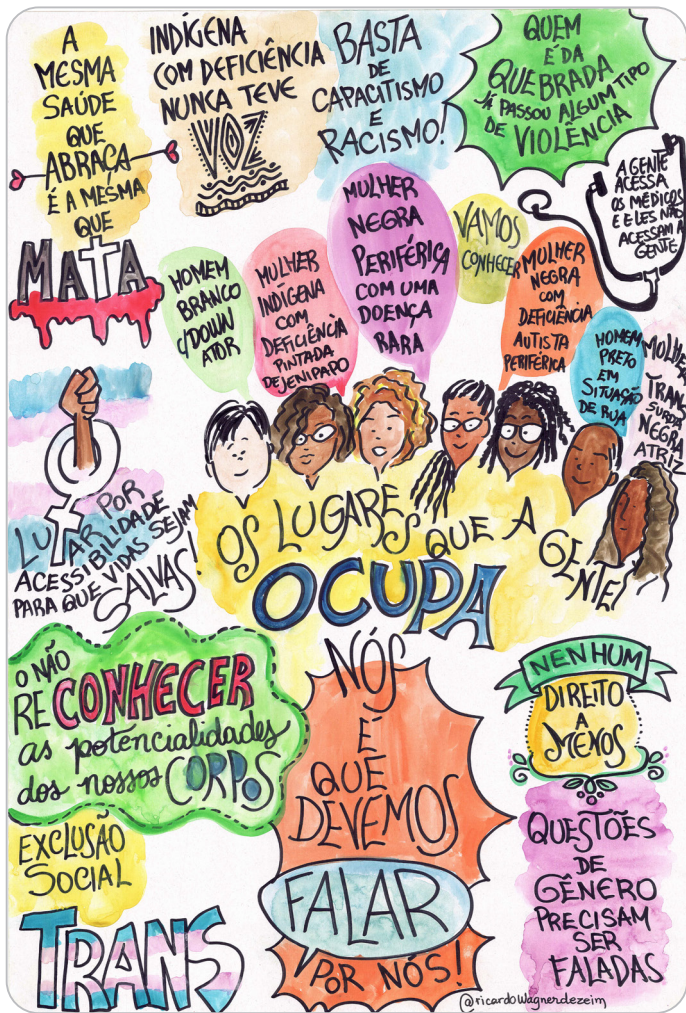 A
MESMA
SAÚDE
QUE
ABRAÇA
É A MESMA
QUE
MATA
INDÍGENA
COM DEFICIÊNCIA
NUNCA TEVE
VOZ
BASTA
DE
CAPACITISMO
E
RACISMO!
QUEM
É DA
QUEBRADA
JÁ PASSOU ALGUM TIPO
DE VIOLÊNCIA
A GENTE
ACESSA
OS MÉDICOS
E ELES NÃO
ACESSAM A
GENTE
HOMEM
BRANCO
C/DOWN
ATOR
MULHER
INDÍGENA
COM
DEFICIÊNCIA
PINTADA
DE JENIPAPO
MULHER
NEGRA
PERIFÉRICA
COM UMA
DOENÇA
RARA
VAMOS
CONHECER
MULHER
NEGRA
COM
DEFICIÊNCIA
AUTISTA
PERIFÉRICA
HOMEM
PRETO
EM
SITUAÇÃO
DE RUA
MULHER
TRANS
SURDA
NEGRA
ATRIZ
LUTAR POR
ACESSIBILIDADE
PARA QUE VIDAS SEJAM
SALVAS!
OS LUGARES QUE A GENTE
OCUPA
O NÃO
RECONHECER
as potencialidades
dos nossos CORPOS
EXCLUSÃO
SOCIAL
TRANS
NÓS
É
QUE
DEVEMOS
FALAR
POR NÓS!
NENHUM
DIREITO
A
MENOS
QUESTÕES
DE
GÊNERO
PRECISAM
SER
FALADAS
@ricardowagnerdezeim